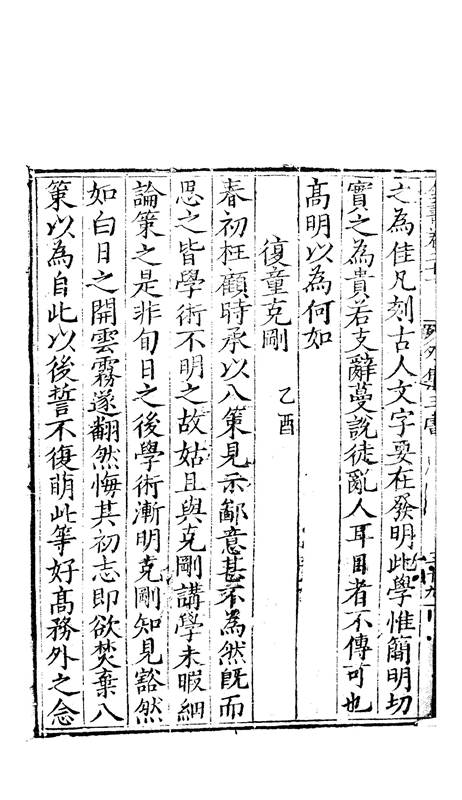 之為佳凡刻古人文字要在發明此學惟簡明切
實之為貴若支辭蔓說徒亂人耳目者不傳可也
髙明以為何如
復童克剛 乙酉
春初枉顧時承以八策見示鄙意甚不為然既而
思之皆學術不明之故姑且與克剛講學未暇細
論策之是非旬日之後學術漸明克剛知見豁然
如白日之開雲霧遂翻然悔其初志即欲焚棄八
策以為自此以後誓不復萌此等好髙務外之念